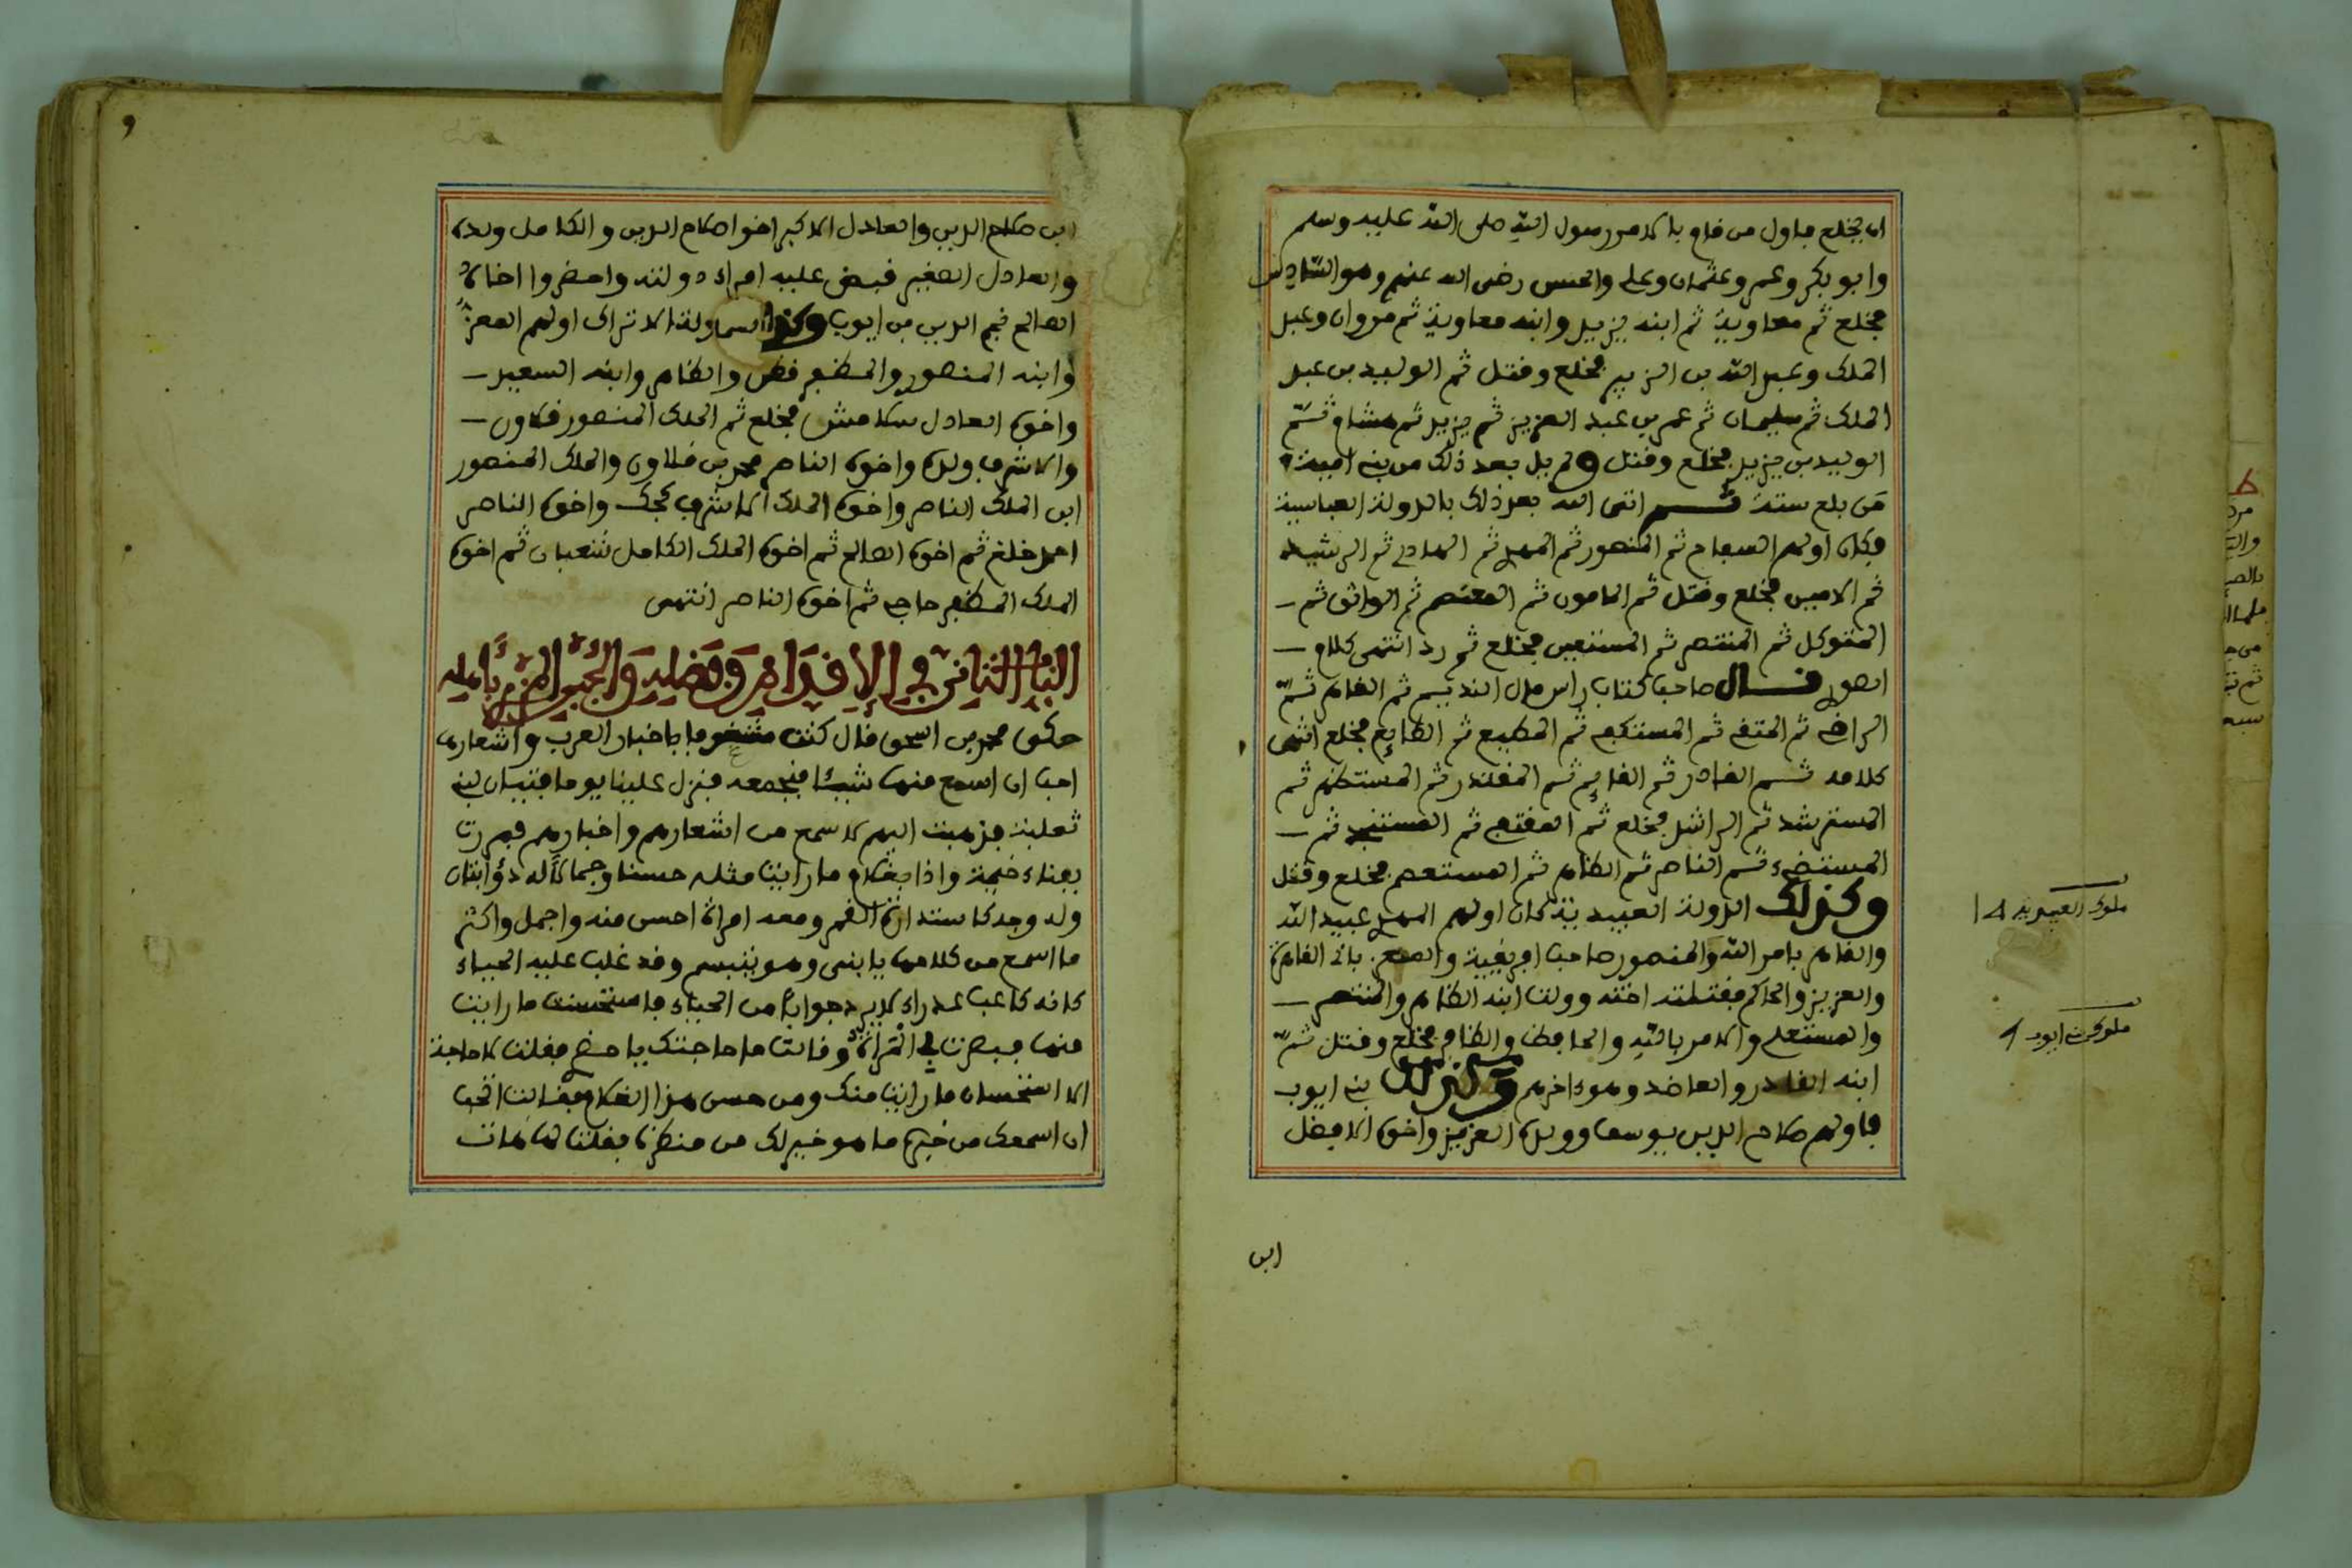 ان يخلع فاول من قام بالامر رسول الله صلى الله عليه وسلم
وابو بكر وعمر وعثمان وعلي والحسن رضى الله عنهم وهو السادس
فخلع ثم معاوية ثم ابنه يزيد وابنه معاوية ثم مروان وعبد
الملك وعبد الله بن الزبير فخلع وقتل ثم الوليد بن عبد
الملك ثم سليمان ثم عمر بن عبد العزيز ثم يزيد ثم هشام ثم
الوليد بن يزيد فخلع وقتل ولم يل بعد ذلك من بني امية
من بلغ ستة ثم اتى الله بعد ذلك بالدولة العباسية
وكان اولهم السفاح ثم المنصور ثم المهدي ثم الهادي ثم الرشيد
ثم الامين فخلع وقتل ثم المامون ثم المعتصم ثم الواثق ثم
المتوكل ثم المنتصر ثم المستعين فخلع ثم رد انتهى كلام
الصولي قال صاحب كتاب راس مال النديم ثم القاهر ثم
الراضي ثم المتقي ثم المستكفي ثم المطيع ثم الطايع فخلع انتهى
كلامه ثم القادر ثم القايم ثم المقتدر ثم المستظهر ثم
المسترشد ثم الراشد فخلع ثم المقتفي ثم المستنجد ثم
المستضيء ثم الناصر ثم الظاهر ثم المستعصم فخلع وقتل
وكذلك الدولة العبيدية كان اولهم المهدي عبيد الله
والقاهر بامر الله والمنصور صاحب افريقية والمعز باني القاهرة
والعزيز والحاكم فقتلته اخته وولت ابنه الظاهر والمنتصر
والمستعلي والامر بالله والحافظ والظافر فخلع وقتل ثم
ابنه القادر والعاضد وهو ءاخرهم وكذلك بني ايوب
فاولهم صلاح الدين يوسف وولده العزيز واخوه الافضل
ابن
ملوك العبيدية 14
ملوك بني ايوب
ابن صلاح الدين والعادل الاكبر اخوا صلاح الدين والكامل ولده
والعادل الصغير فبض عليه امراء دولته واحضروا اخاه
الصالح نجم الدين بن ايوب وكذا دولة الاتراك اولهم المعز
وابنه المنصور والمظفر قطز والظاهر وابنه السعيد
واخوه العادل سلامش فخلع ثم الملك المنصور قلاون
والاشرف ولده واخوه الناصر محمد بن قلاون والملك المنصور
ابن الملك الناصر واخوه الملك الاشرف كجك واخوه الناصر
احمد فخلع ثم اخوه الصالح ثم اخوه الملك الكامل شعبان ثم اخوه
الملك المظفر حاجي ثم اخوه الناصر انتهى
الباب الثاني في الاقدام وفضله والجبن المزري باهله
حكى محمد بن اسحق قال كنت مشغوفا باخبار العرب واشعارها
احب ان اسمع منها شيئا فنجمعه فنزل علينا يوما فتيان لبني
ثعلبة فذهبت اليهم لاسمع من اشعارهم واخبارهم فمررت
بفناء خيمة واذا بغلام ما رايت مثله حسنا وجمالا له ذؤابتان
وله وجه كاستدارة القمر ومعه امراة احسن منه واجمل واكثر
ما اسمع من كلامها يا بني وهو يتبسم وقد غلب عليه الحياء
كانه كاعب عذراء لا يرد جوابا من الحياء فاستحسنت ما رايت
منها فبصرت بي المراة وقالت ما حاجتك يا حضري فقلت لا حاجة
الا استحسان ما رايت منك ومن حسن هذا الغلام فقالت اتحب
ان اسمعك من خبره ما هو خير لك من منظره فقلت لها هات